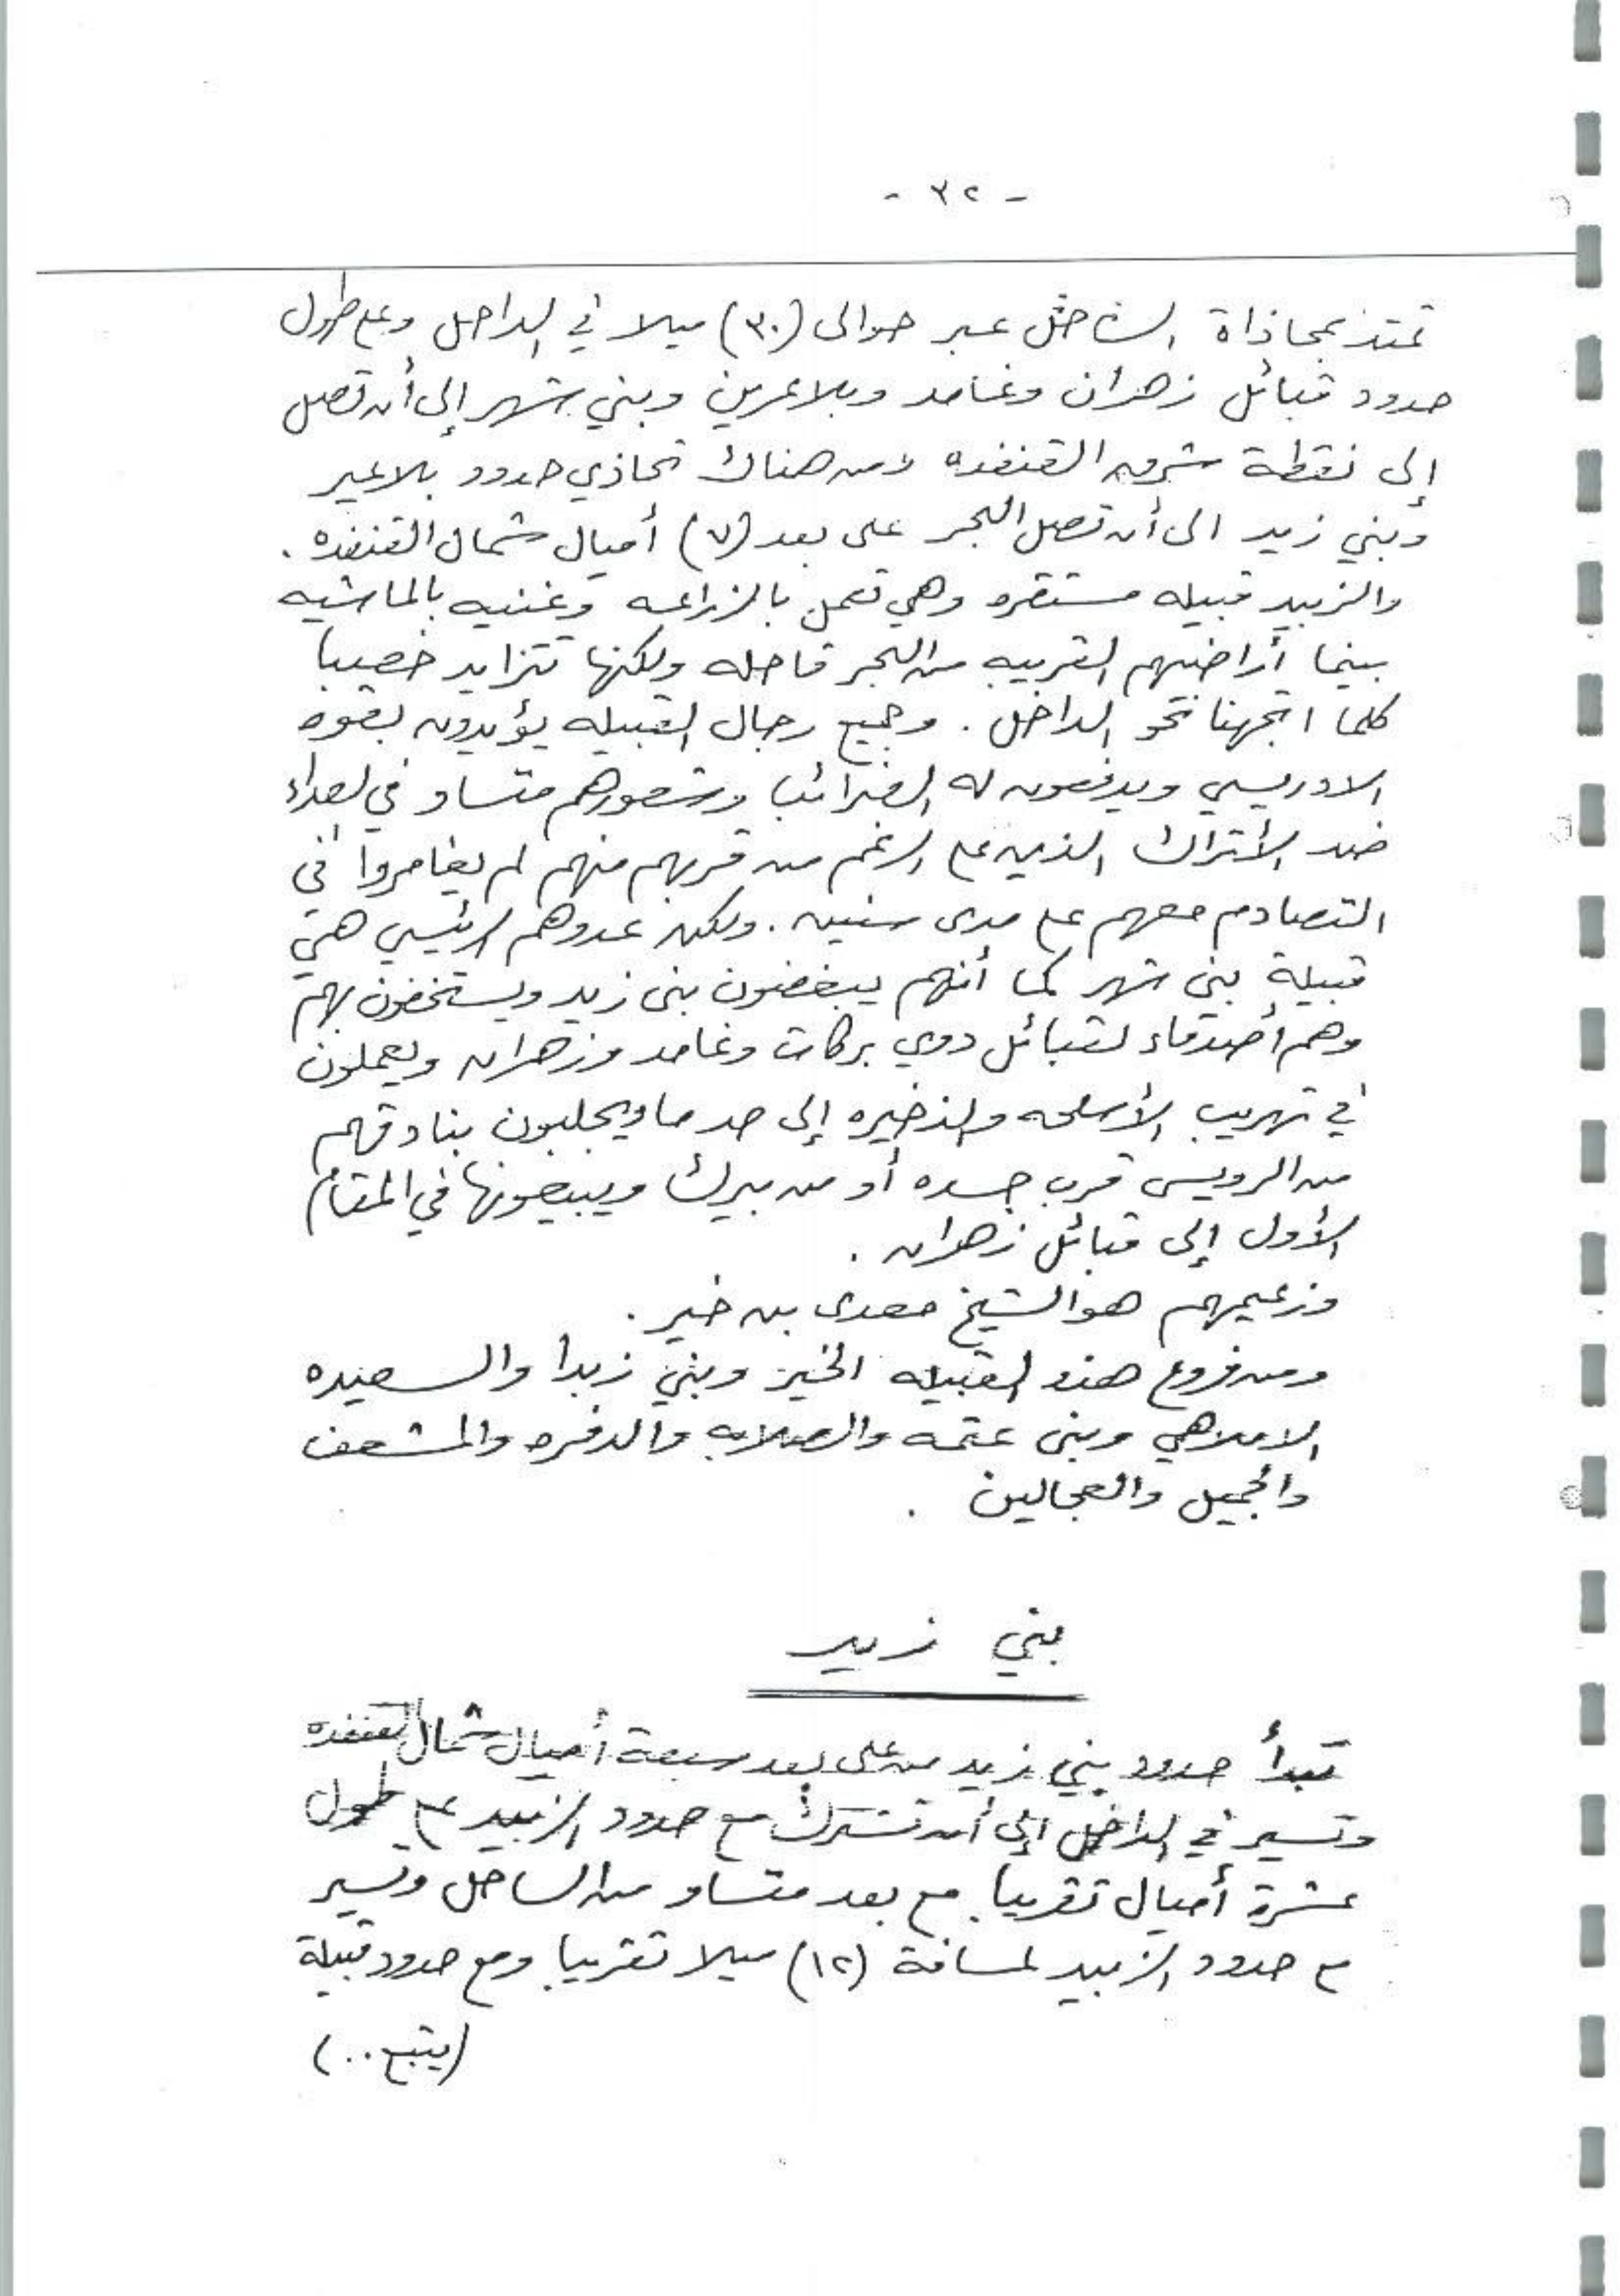 - ٣٢ -
تمتد بمحاذاة الساحل عبر حوالى (٣٠) ميلا في الداخل وعلى طول
حدود قبائل زهران وغامد وبلاعرين وبني شهر إلى أن تصل
إلى نقطة شرق القنفده ومن هناك تحاذي حدود بلاعير
وبني زيد الى أن تصل البحر على بعد (٧) أميال شمال القنفده .
والزبيد قبيله مستقره وهي تعمل بالزراعه وغنيه بالماشيه
بينما أراضيهم القريبه من البحر قاحله ولكنها تتزايد خصيبا
كلما اتجهنا نحو الداخل . وجميع رجال القبيله يؤيدون بقوه
الادريسي ويدفعون له الضرائب وشعورهم متساو في العداء
ضد الأتراك الذين على الرغم من قربهم منهم لم يغامروا في
التصادم معهم على مدى سنين . ولكن عدوهم الرئيسي هي
قبيلة بنى شهر كما أنهم يبغضون بنى زيد ويستخفون بهم
وهم أصدقاء لقبائل دوي بركات وغامد وزهران ويعملون
في تهريب الأسلحه والذخيره إلى حد ما ويجلبون بنادقهم
من الرويس قرب جده أو من بيرك ويبيعونها في المقام
الأول إلى قبائل زهران .
وزعيمهم هو الشيخ معدى بن خير .
ومن فروع هذه القبيله الخير وبني زبدا والسعيده
الاملاهي وبنى عتمه والصلابه والدفره والمشعف
والجميل والعجالين .
بني زيد
تبدأ حدود بني زيد من على بعد سبعة أميال شمال القنفده
وتسير في الداخل إلى أن تشترك مع حدود الزبيد على طول
عشرة أميال تقريبا مع بعد متساو من الساحل وتسير
مع حدود الزبيد لمسافة (١٢) ميلا تقريبا ومع حدود قبيلة
(يتبع..)